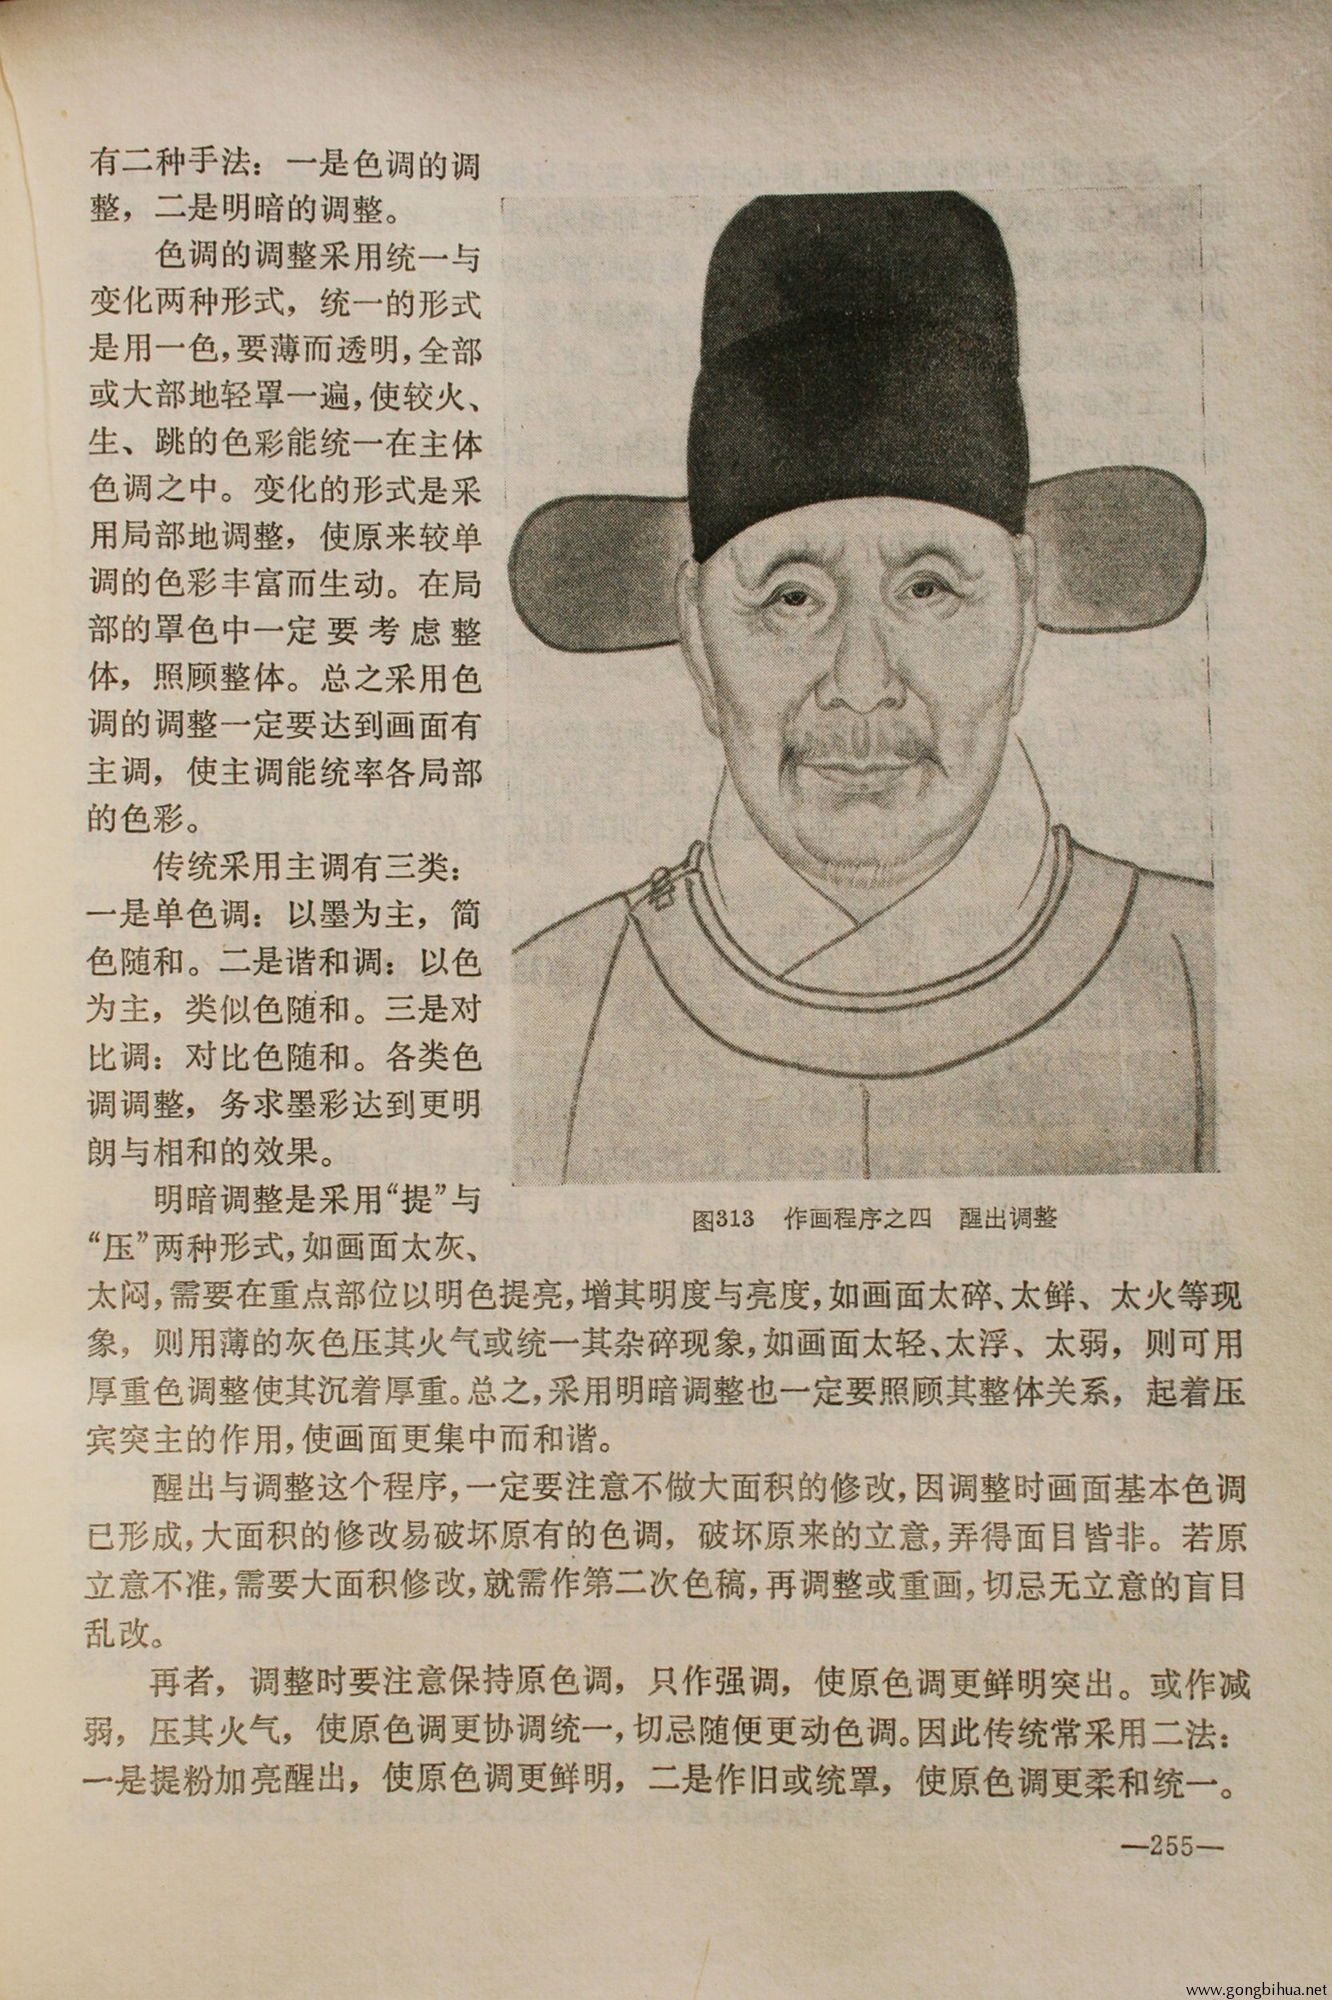 有二种手法：一是色调的调
整，二是明暗的调整。
色调的调整采用统一与
变化两种形式，统一的形式
是用一色，要薄而透明，全部
或大部地轻罩一遍，使较火、
生、跳的色彩能统一在主体
色调之中。变化的形式是采
用局部地调整，使原来较单
调的色彩丰富而生动。在局
部的罩色中一定要考虑整
体，照顾整体。总之采用色
调的调整一定要达到画面有
主调，使主调能统率各局部
的色彩。
传统采用主调有三类：
一是单色调：以墨为主，简
色随和。二是谐和调：以色
为主，类似色随和。三是对
比调：对比色随和。各类色
调调整，务求墨彩达到更明
朗与相和的效果。
明暗调整是采用“提”与
“压”两种形式，如画面太灰、
太闷，需要在重点部位以明色提亮，增其明度与亮度，如画面太碎、太鲜、太火等现
象，则用薄的灰色压其火气或统一其杂碎现象，如画面太轻、太浮、太弱，则可用
厚重色调整使其沉着厚重。总之，采用明暗调整也一定要照顾其整体关系，起着压
宾突主的作用，使画面更集中而和谐。
醒出与调整这个程序，一定要注意不做大面积的修改，因调整时画面基本色调
已形成，大面积的修改易破坏原有的色调，破坏原来的立意，弄得面目皆非。若原
立意不准，需要大面积修改，就需作第二次色稿，再调整或重画，切忌无立意的盲目
乱改。
再者，调整时要注意保持原色调，只作强调，使原色调更鲜明突出。或作减
弱，压其火气，使原色调更协调统一，切忌随便更动色调。因此传统常采用二法：
一是提粉加亮醒出，使原色调更鲜明，二是作旧或统罩，使原色调更柔和统一。
图313 作画程序之四 醒出调整
—255—
www.gongbihua.net